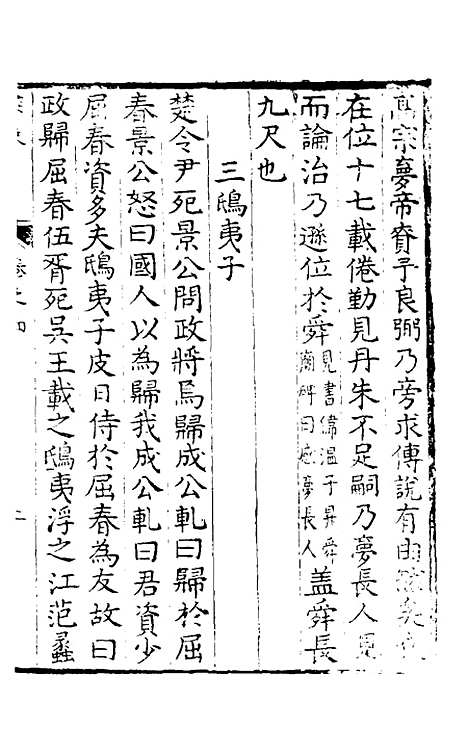 高宗夢帝賚予良弼乃旁求傳說有由然矣
在位十七載倦勤見丹朱不足嗣乃夢長人見
而論治乃遜位於舜見書偉溫子昇舜廟碑曰感夢長人蓋舜長
九尺也
三鴟夷子
楚令尹死景公問政將焉歸成公乹曰歸於屈
春景公怒曰國人以為歸我成公乹曰君資少
屈春資多夫鴟夷子皮日侍於屈春為友故曰
政歸屈春伍胥死吳王載之鴟夷浮之江范蠡
卷之四
二